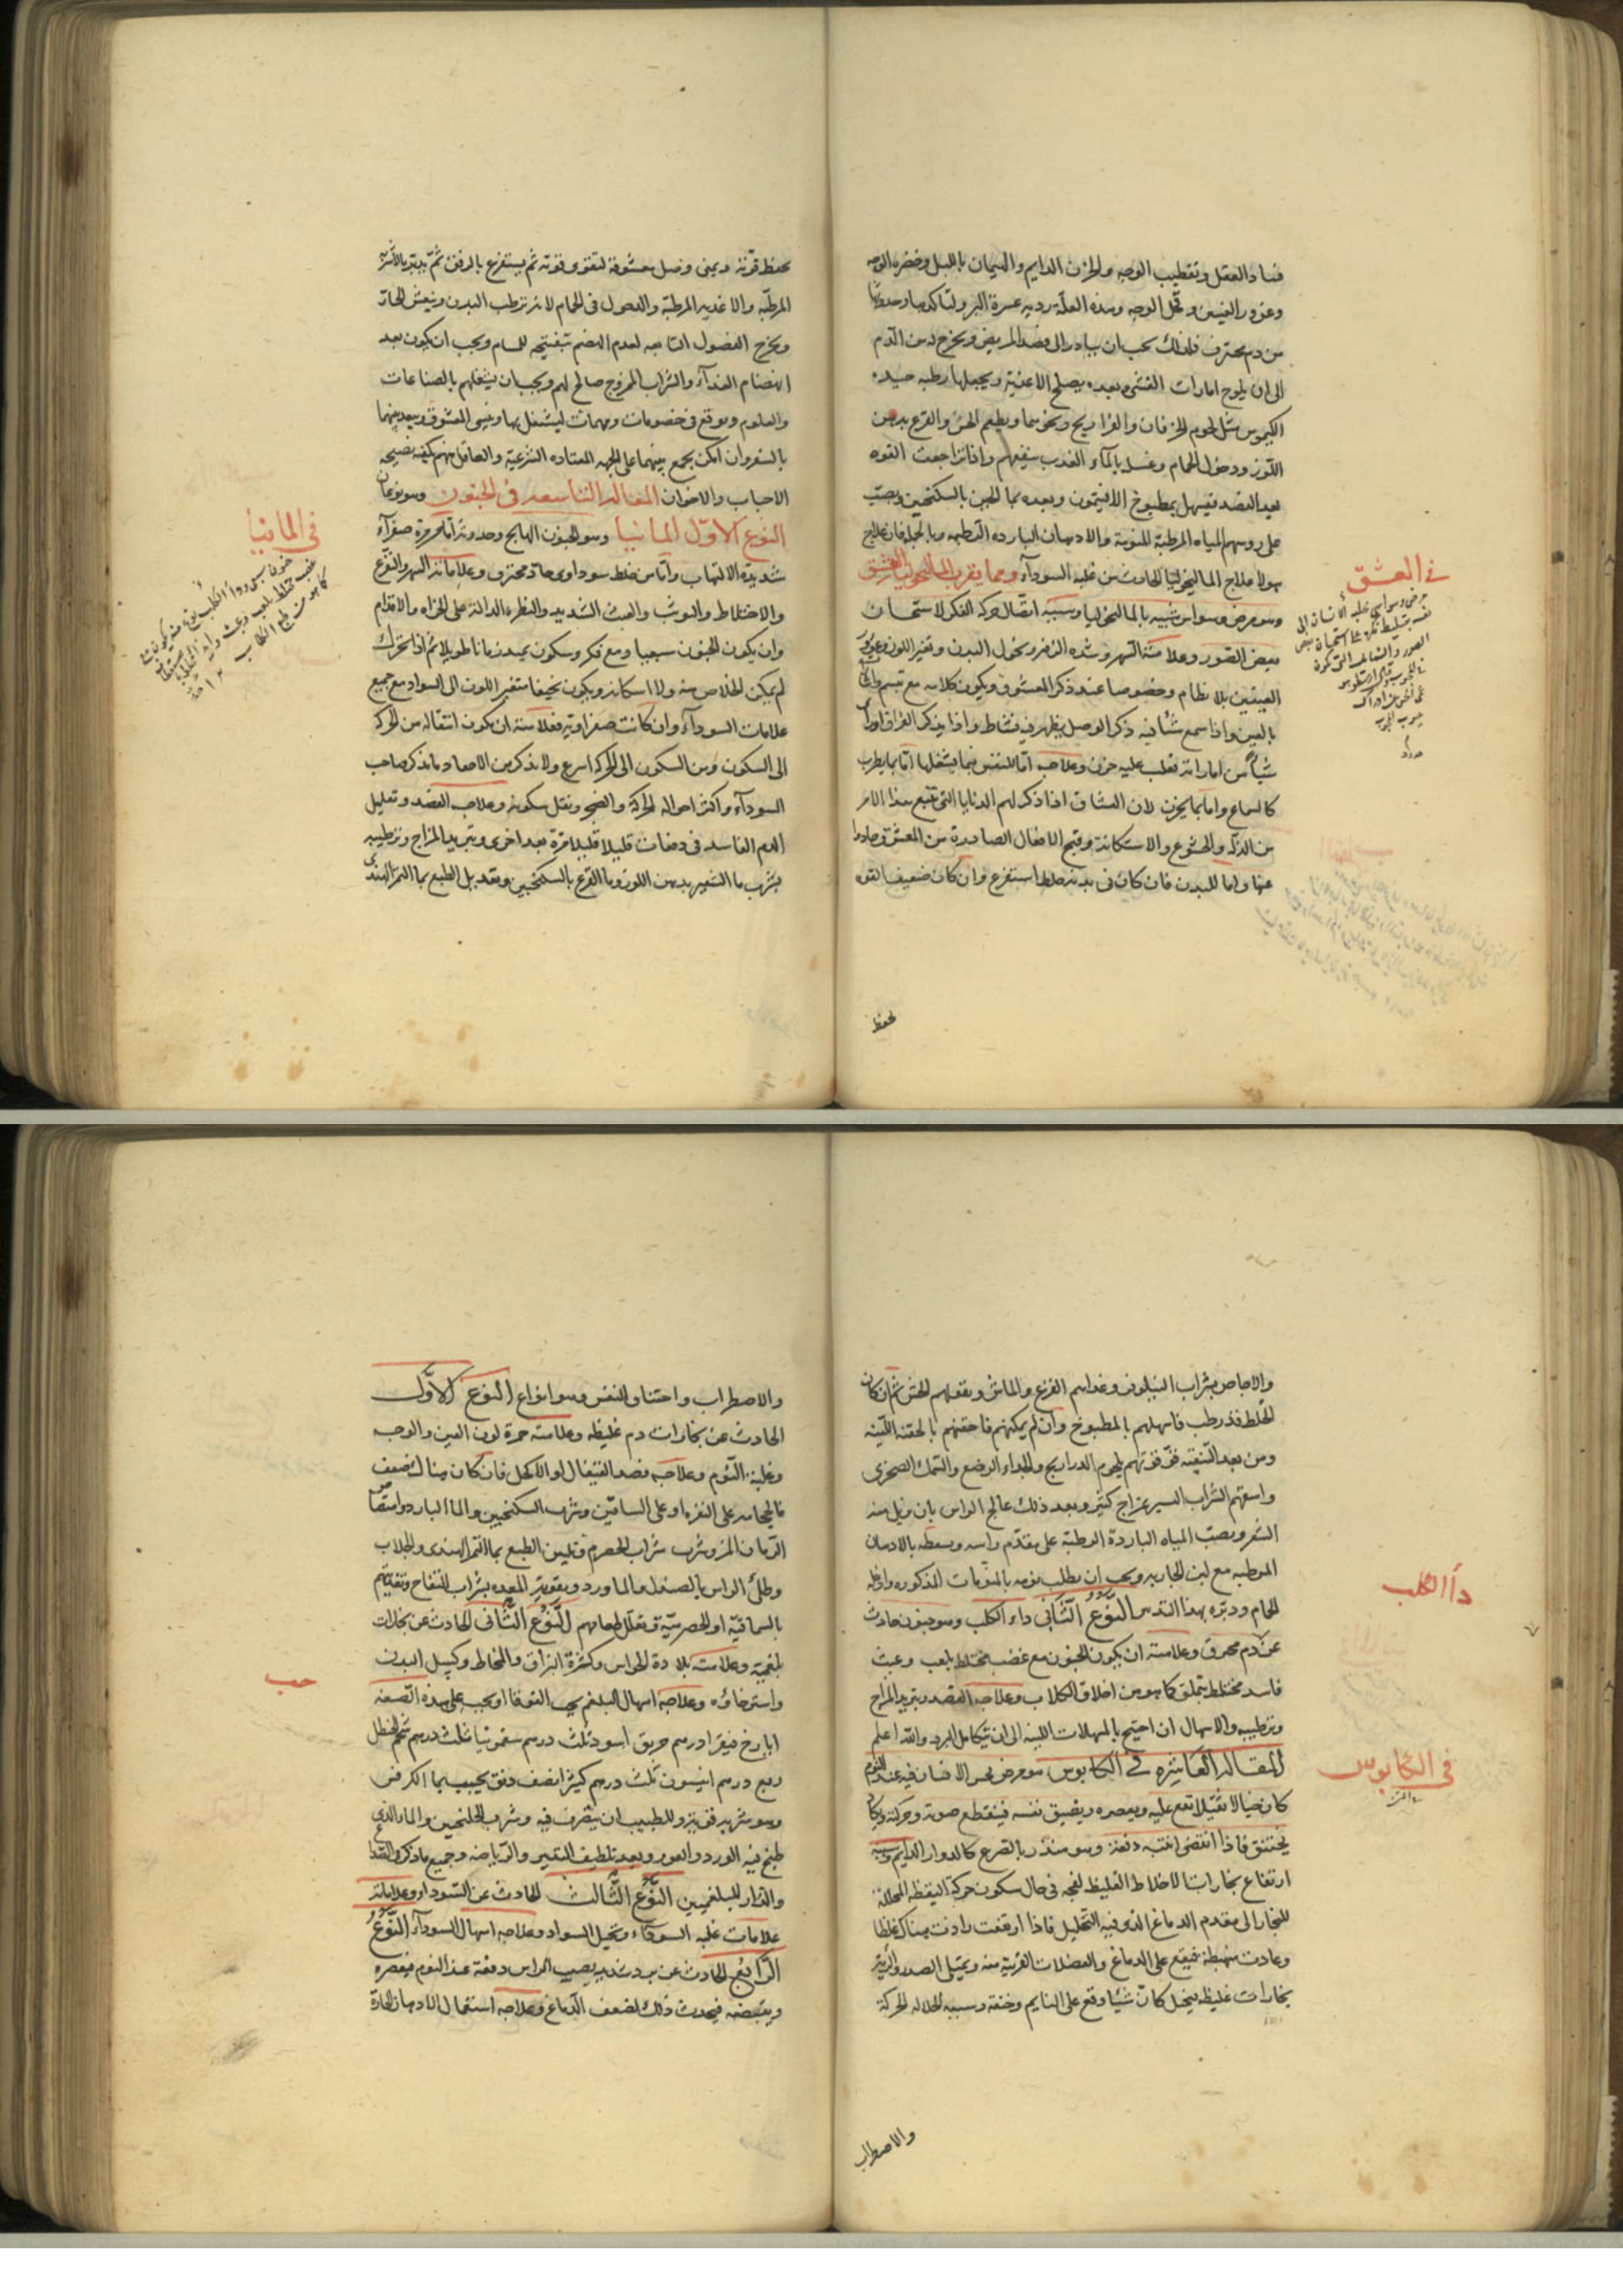 فساد العقل وتقطيب الوجه والحزن الدايم والهيمان بالليل وخضرة الوجه
وغور العينين وقحل الوجه وهذه العلة رديه عسرة البرو لتاكدها وحدوثها
من دم محترق فلذلك يجب ان يبادر الى فصد المريض ويخرج له من الدم
الى ان يلوح امارات الغشى وبعده يصلح الاغذية ويجعلها رطبه جيده
الكيموس مثل لحوم الخرفان والفراريج ونحوهما ويطعم الخس والقرع بدهن
اللوز ودخول الحمام وغسل بالمآء العذب ينفعهم واذا تراجعت القوه
بعد الفصد فيسهل بمطبوخ الافتيمون وبعده بما الجبن بالسكنجبين ويصب
على روسهم المياه المرطبة المنومة والادهان البارده الرطبه وبالجمله فان علاج
هولا علاج الماليخوليا الحادث من غلبه السودآء ومما يقرب الماليخوليا العشق
وهو مرض وسواسى شبيه بالماليخوليا وسببه اتصال حركه الفكر لاستحسان
بعض الصور وعلامته السهر وشده الزفير ونحول البدن وتغير اللون وغور
العينين بلا نظام وخصوصا عند ذكر المعشوق ويكون كلامه مع تبسم
بالعين واذا سمع شئا فيه ذكر الوصل يظهر فيه نشاط واذا يذكر الفراق او
شيأ من اماراته تغلب عليه حزن وعلاجه اما للنفس فبما يشغلها اما بما يطرب
كالسماع واما بما يحزن لان العشاق اذا ذكر لهم الدنايا التى تتبع هذا الامر
من الذلة والخشوع والاستكانة وقبح الافعال الصادرة من المعشوق حادوا
عنها واما للبدن فان كان فى بدنه خلط استفرغ وان كان ضعيف القوه
يحفظ
فى العشق
مرض وسواسى يجلبه الانسان الى
نفسه بتسليط فكره على استحسان بعض
الصور والشمائل التى تكون
يحفظ قوته ويمنى وصل معشوقه لتقوى قوته ثم يستفرغ بالرفق ثم يدبر بالاشربه
المرطبه والاغذيه المرطبة والدخول فى الحمام لانه يرطب البدن وينعش الحار
ويخرج الفضول التابعه لعدم الهضم بتفتيحه للمسام ويجب ان يكون بعد
انهضام الغذآء والشراب الممزوج صالح لهم ويجب ان يشغلهم بالصناعات
والعلوم ويوقع فى خصومات ومهمات ليشتغل بها وينسى المعشوق ويبعد بينهما
بالسفر وان امكن يجمع بينهما على الجهه المعتاده الشرعية والعاقل منهم يكفيه نصيحه
الاحباب والاخوان المقاله التاسعه فى الجنون وهو نوعان
النوع الاول المانيا وهو الجنون الهايج وحدوثه اما من مرة صفرآء
شديدة الالتهاب واما من خلط سوداوى حاد محترق وعلاماته السهر والفزع
والاختلاط والتوشب والعبث الشديد والنظره الدالة على الجراه والاقدام
وان يكون الجنون سبعيا ومع فكر وسكون يمتد زمانا طويلا ثم اذا تحرك
لم يمكن الخلاص منه ولا اسكاته ويكون نحيفا متغير اللون الى السواد مع جميع
علامات السودآء وان كانت صفراويه فعلامته ان يكون انتقاله من الحركه
الى السكون ومن السكون الى الحركه اسرع ولا يذكر من الاحقاد ما يذكر صاحب
السودآء واكثر احواله الحركة والضجر ويقل سكونه وعلاجه الفصد وتقليل
الدم الفاسد فى دفعات قليلا قليلا مرة بعد اخرى وتبريد المزاج وترطيبه
بشرب ما الشعير بدهن اللوز وما القرع بالسكنجبين وتعديل الطبع بما التمر الهندى
فى المانيا
جنون سبعى وداء الكلب نوع منه يكون مع
غضب مختلط بلعب وعبث
كما هو من طبع الكلاب
والاجاص بشراب النيلوفر وغذايهم القرع والماش وبقولهم الخس ثم ان كان
الخلط قد رطب فاسهلهم بالمطبوخ وان لم يمكنهم فاحقنهم بالحقنه اللينه
ومن بعد التنقيه فقو قوتهم بلحوم الدراريج والجداء الرضع والسمك الصخرى
واسقهم الشراب اليسير بمزاج كثير وبعد ذلك عالج الراس بان يزيل منه
الشعر ويصب المياه الباردة الرطبة على مقدم راسه ويسعطه بالادهان
المرطبه مع لبن الجاريه ويجب ان يطلب نومه بالمنومات المذكوره وادخله
الحمام ودبره بهذا التدبير النوع الثانى داء الكلب وهو جنون حادث
عن دم محرق وعلامته ان يكون الجنون مع غضب مختلط بلعب وعبث
فاسد مختلط بتملق كما هو من اخلاق الكلاب وعلاجه الفصد وتبريد المزاج
وترطيبه والاسهال ان احتيج بالمسهلات اللينه الى ان يتكامل البرء والله اعلم
المقاله العاشره فى الكابوس هو مرض يحس الانسان فيه عند النوم
كان خيالا ثقيلا تقع عليه ويعصره ويضيق نفسه فينقطع صوته وحركته ويكاد
يختنق فاذا انقضى انتبه دفعة وهو منذر بالصرع كالدوار الدايم وسببه
ارتفاع بخارات الاخلاط الغليظ الفجه فى حال سكون حركة اليقظه المحللة
للبخار الى مقدم الدماغ الذى فيه التخيل فاذا ارتفعت زادت هناك غلظا
وعادت منهبطة فيقع على الدماغ والعضلات القريبة منه ويمتلى الصدر والرية
بخارات غليظه يتخيل كان شيئا وقع على النايم وخنقه وسببه المحلاله الحركة
والاضطراب
دآ الكلب
فى الكابوس
والاضطراب واختناق النفس وهو انواع النوع الاول
الحادث عن بخارات دم غليظه وعلامته حمرة لون العين والوجه
وغلبة النوم وعلاجه فصد القيفال او الاكحل فان كان هناك ضعف
فالحجامه على النقره او على الساقين وشرب السكنجبين والما البارد وامتصاص
الرمان المز وشرب شراب الحصرم وتليين الطبع بما التمر الهندى والجلاب
وطلى الراس بالصندل والماورد وتقوية المعده بشراب التفاح وتغذيتهم
بالسماقيه او الحصرميه وتقليل طعامهم النوع الثانى الحادث عن بخارات
بلغمية وعلامته بلادة الحواس وكثرة البزاق والمخاط وكسل البدن
واسترخاؤه وعلاجه اسهال البلغم بحب القوقايا او بحب على هذه الصفه
ايارج فيقرا درهم خربق اسود ثلث درهم سقمونيا ثلث درهم شحم الحنظل
ربع درهم انيسون ثلث درهم كثيرا نصف دنق يحبب بما الكرفس
وهو شربه قويه وللطبيب ان يتصرف فيه وشرب الجلنجبين والماء الذى
طبخ فيه الورد والعود وبعد تلطيف التدبير والرياضه وجميع ما ذكر فى الصداع
والدوار البلغميين النوع الثالث الحادث عن السودا وعلاماته
علامات غلبه السودآء وتخيل السواد وعلاجه اسهال السودآء النوع
الرابع الحادث عن برد شديد يصيب الراس دفعة عند النوم فيعصره
ويقبضه فيحدث ذلك لضعف الدماغ وعلاجه استعمال الادهان الحارة
حب